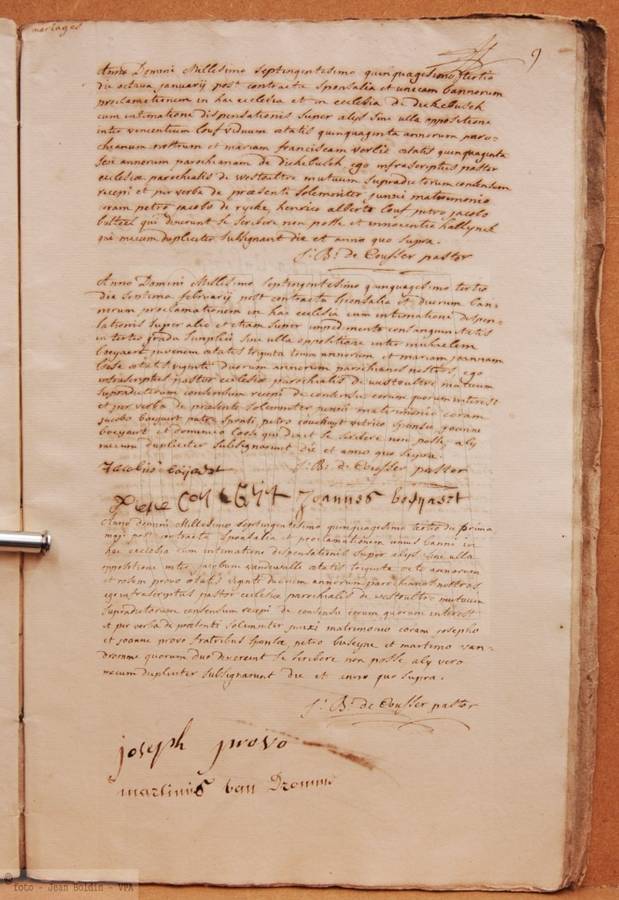 mariages
9
Anno Domini Millesimo Septingentesimo quinquagesimo tertio
die octava januarij post contracta Sponsalia et unicam bannorum
proclamationem in hac ecclesia et in ecclesia de dickebusch
cum intimatione dispensationis super alijs sine ulla oppositione
inter vincentium Couf viduum ætatis quinquaginta annorum paro-
chianum nostrum et mariam franciscam ætatis quinquaginta
annorum parochianam de dickebusch, ego infrascriptus pastor
ecclesiæ parochialis de westoultre mutuum supradictorum consensum
recepi et per verba de præsenti solemniter junxi matrimonio
coram petro jacobo de rycke, henrico alberto Couf, petro jacobo
bulteel qui dixerunt se scribere non posse et innocentio
qui mecum dupliciter subsignant die et anno quo supra.
J: B: de Cousser pastor
Anno Domini Millesimo Septingentesimo quinquagesimo tertio
die Septima februarij post contracta sponsalia et duorum ban-
norum proclamationem in hac ecclesia cum intimatione dispen-
sationis super alio et etiam super impedimento consanguinitatis
in tertio gradu sine ulla oppositione inter michaelem
boeyaert juvenem ætatis triginta annorum et mariam joannam
ætatis viginti duorum annorum parochianos nostros, ego
infrascriptus pastor ecclesiæ parochialis de westoultre mutuum
supradictorum consensum recepi de consensu eorum quorum interest
et per verba de præsente solemniter junxi matrimonio coram
jacobo boeyaert patre sponsi, petro vitrico sponsæ, joanne
boeyaert et dominico qui dixit se scribere non posse, alij
mecum dupliciter subsignarunt die et anno quo supra.
J: B: de Cousser pastor
Jacobus boeyaert
Joannes boeyaert
Anno domini Millesimo Septingentesimo quinquagesimo tertio die prima
maij post contracta sponsalia et proclamationem unius banni in
hac ecclesia cum intimatione dispensationis super alijs sine ulla
oppositione inter jacobum vandewalle ætatis triginta octo annorum
et rosam provo ætatis viginti annorum parochianos nostros
ego infrascriptus pastor ecclesiæ parochialis de westoultre mutuum
supradictorum consensum recepi de consensu eorum quorum interest
et per verba de præsenti solemniter junxi matrimonio coram josepho
et joanne provo fratribus sponsæ, petro et martino van-
dromme quorum duo dixerunt se scribere non posse, alij vero
mecum dupliciter subsignarunt die et anno quo supra.
J: B: de Cousser pastor
joseph provo
martinus van Dromme
© foto - Jean Boldin - VPA